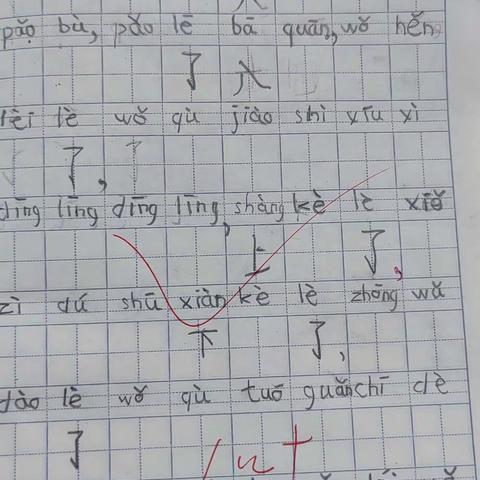 pǎo bù, pǎo lē bā quān, wǒ hěn
了 八
lèi lè wǒ qù jiào shì xīu xì
了,
dīng līng dīng līng, shàng kè lè xiě
上 了,
zì dú shū xiàn kè lè zhōng wǔ
下 了,
dào lè wǒ qù tuō guǎn chī dè
了